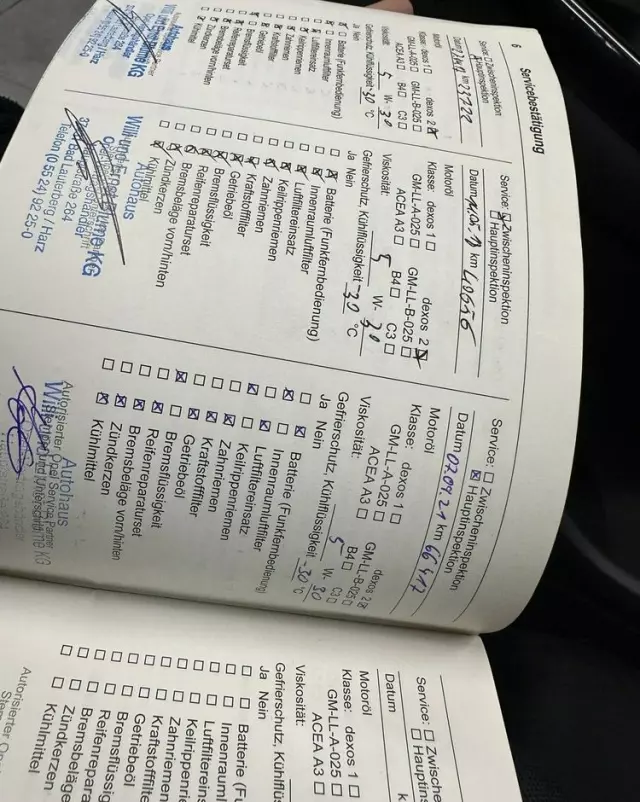 6
Servicebestätigung
Service: □ Zwischeninspektion
Hauptinspektion
Datum km 23722
Motoröl
Klasse: dexos 1 □ dexos 2 ☒
GM-LL-A-025 □ GM-LL-B-025 □
ACEA A3 □ B4 □ C3 □
Viskosität: 5 W- 30
Gefrierschutz, Kühlflüssigkeit -30 °C
Ja Nein
Batterie (Funkfernbedienung)
Innenraumluftfilter
Luftfiltereinsatz
Keilrippenriemen
Zahnriemen
Kraftstofffilter
Getriebeöl
Bremsflüssigkeit
Reifenreparaturset
Bremsbeläge vorn/hinten
Zündkerzen
Kühlmittel
Service: ☒ Zwischeninspektion
□ Hauptinspektion
Datum km 40656
Motoröl
Klasse: dexos 1 □ dexos 2 ☒
GM-LL-A-025 □ GM-LL-B-025 □
ACEA A3 □ B4 □ C3 □
Viskosität: 5 W- 30
Gefrierschutz, Kühlflüssigkeit -30 °C
Ja Nein
□ ☒ Batterie (Funkfernbedienung)
□ ☒ Innenraumluftfilter
□ ☒ Luftfiltereinsatz
□ ☒ Keilrippenriemen
□ ☒ Zahnriemen
□ ☒ Kraftstofffilter
□ ☒ Getriebeöl
□ ☒ Bremsflüssigkeit
□ ☒ Reifenreparaturset
□ ☒ Bremsbeläge vorn/hinten
□ ☒ Zündkerzen
□ ☒ Kühlmittel
Autohaus
Willi und Ernst Blume KG
Bad Lauterberg / Harz
Telefon (0 55 24) 92 25-0
Service: □ Zwischeninspektion
☒ Hauptinspektion
Datum 02.09.21 km 66417
Motoröl
Klasse: dexos 1 □ dexos 2 ☒
GM-LL-A-025 □ GM-LL-B-025 □
ACEA A3 □ B4 □ C3 □
Viskosität: 5 W- 30
Gefrierschutz, Kühlflüssigkeit -30 °C
Ja Nein
□ ☒ Batterie (Funkfernbedienung)
☒ □ Innenraumluftfilter
□ ☒ Luftfiltereinsatz
☒ □ Keilrippenriemen
□ ☒ Zahnriemen
□ ☒ Kraftstofffilter
□ ☒ Getriebeöl
☒ □ Bremsflüssigkeit
□ ☒ Reifenreparaturset
□ ☒ Bremsbeläge vorn/hinten
□ ☒ Zündkerzen
□ ☒ Kühlmittel
Autohaus
KG
Autorisierter Opel Service Partner
Service: □ Zwische
□ Hauptins
Datum k
Motoröl
Klasse: dexos 1 □
GM-LL-A-025 □
ACEA A3 □
Viskosität:
Gefrierschutz, Kühlflüs
Ja Nein
□ □ Batterie (Fu
□ □ Innenrauml
□ □ Luftfiltereins
□ □ Keilrippenrie
□ □ Zahnriemen
□ □ Kraftstofffilte
□ □ Getriebeöl
□ □ Bremsflüssig
□ □ Reifenrepara
□ □ Bremsbeläge
□ □ Zündkerzen
□ □ Kühlmittel
Autorisierter Ope